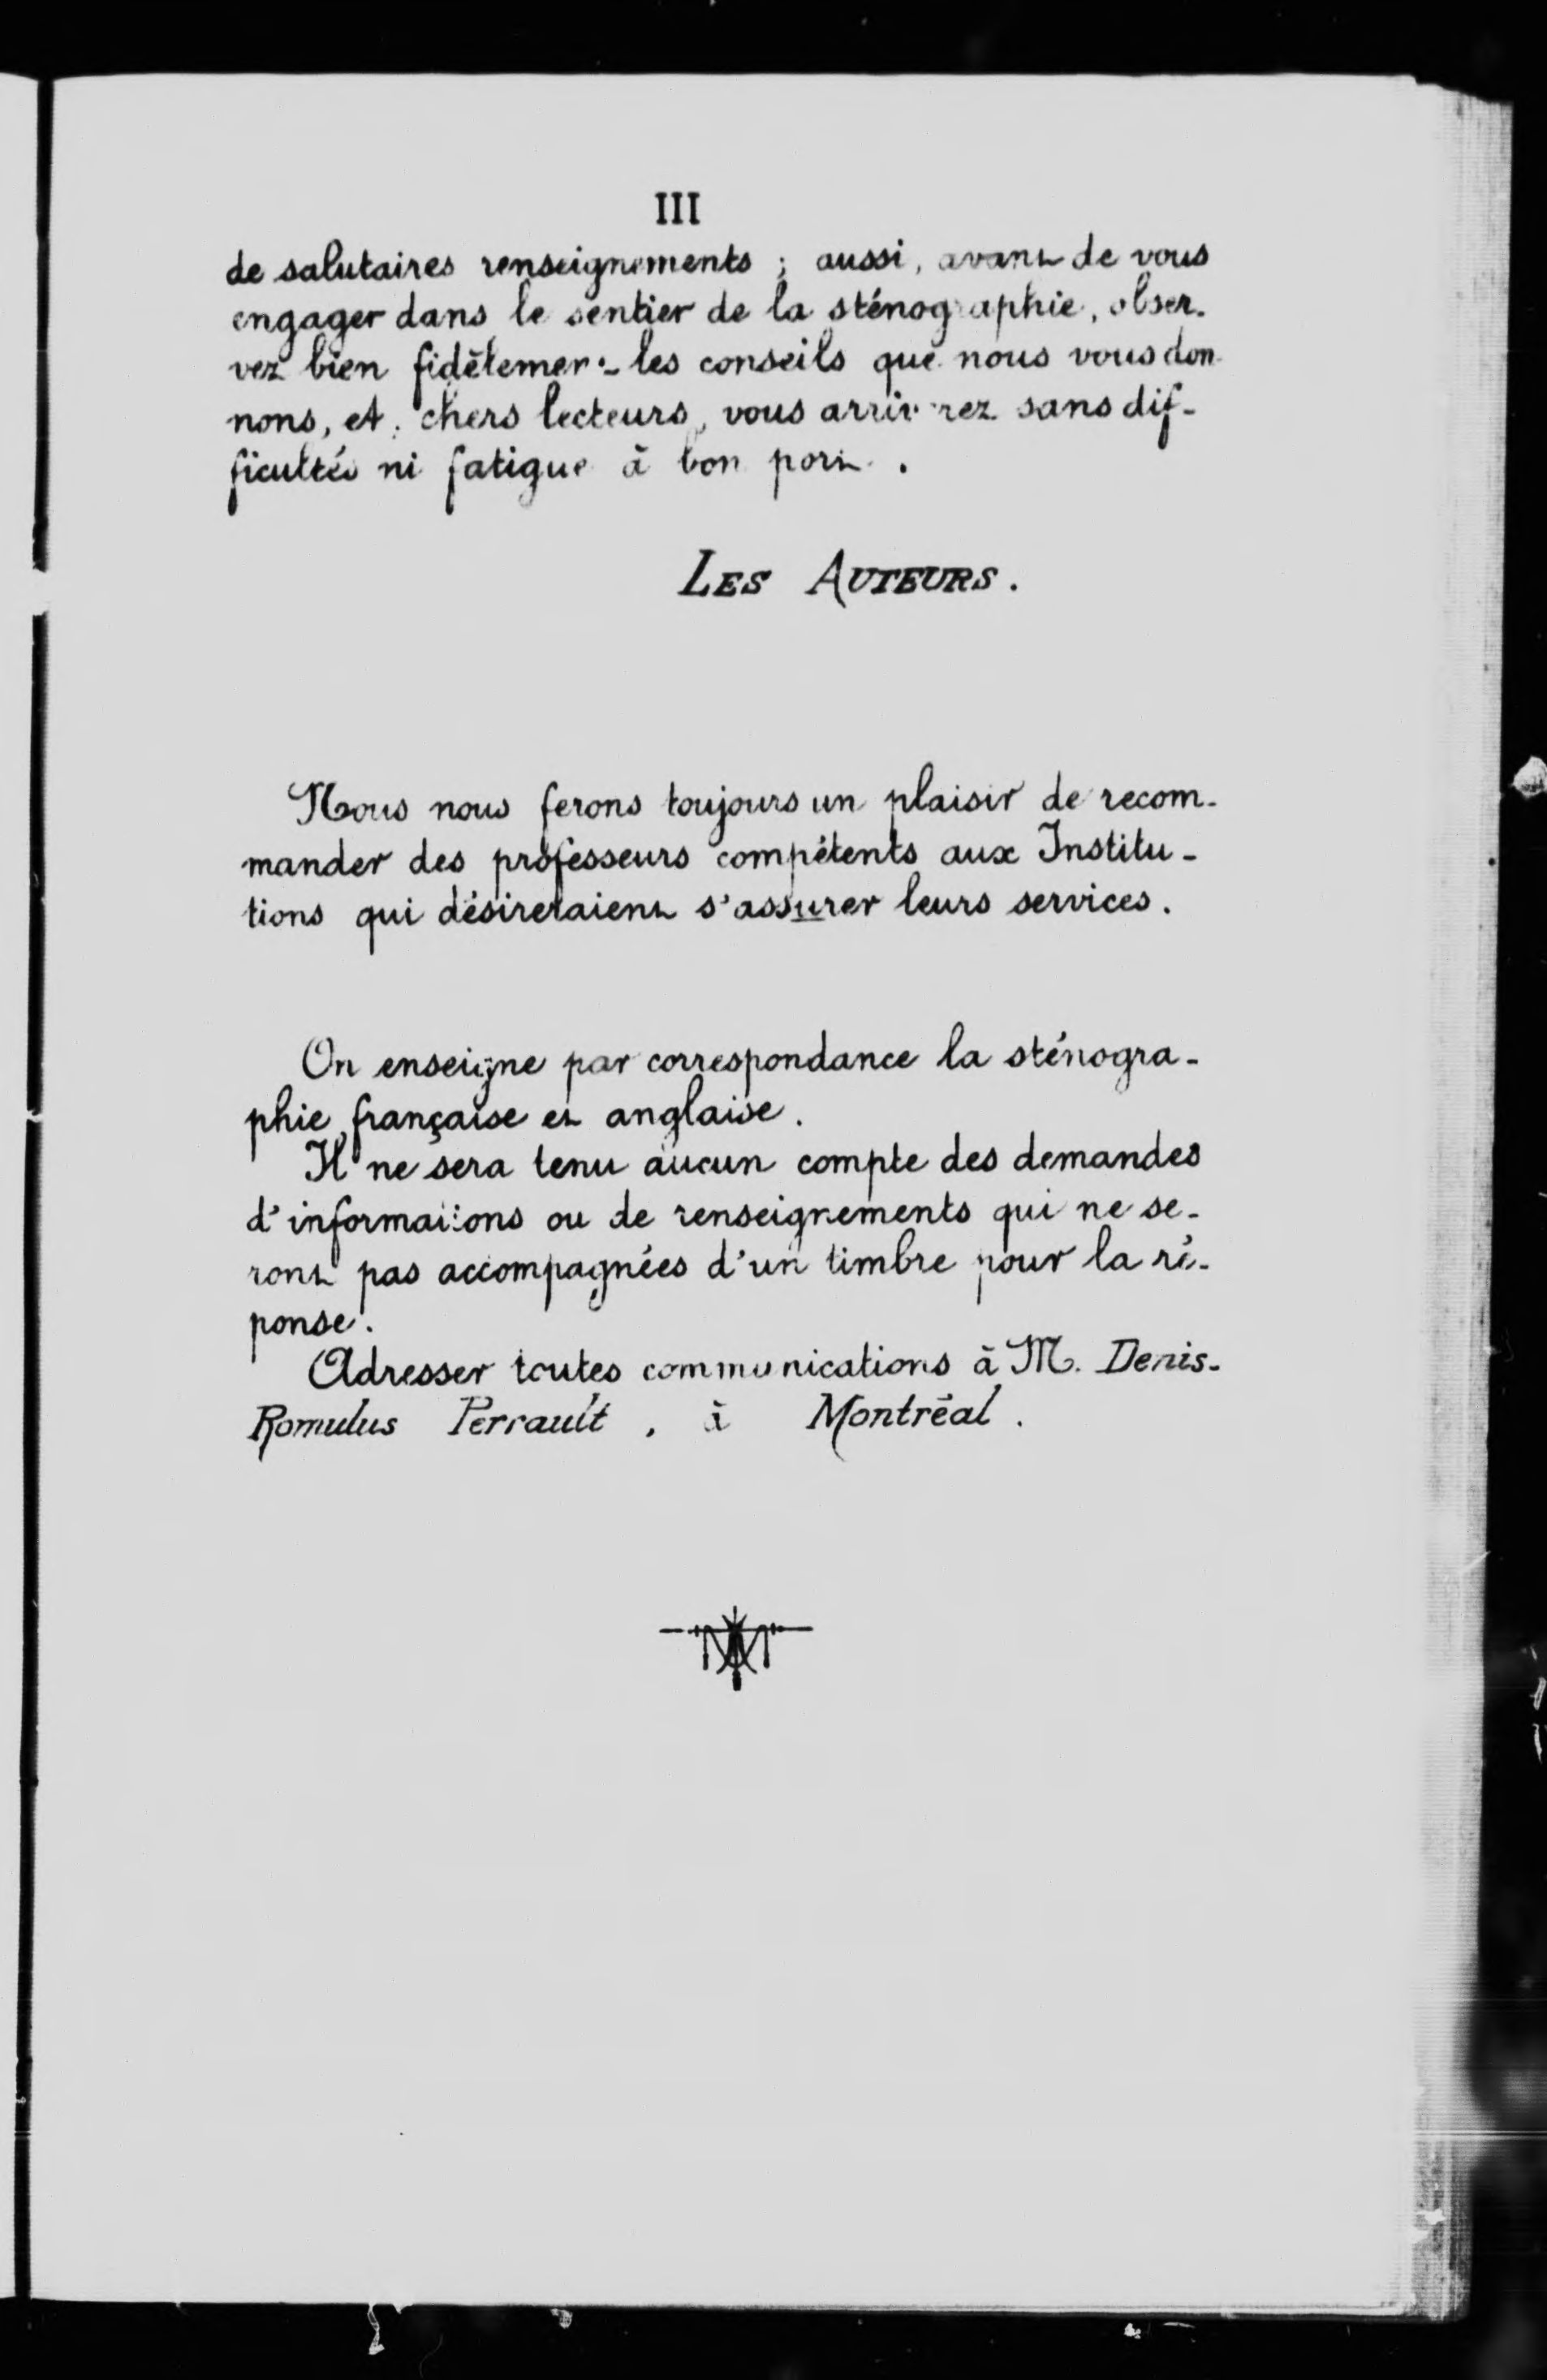 III
de salutaires renseignements ; aussi, avant de vous
engager dans le sentier de la sténographie, obser-
vez bien fidèlement les conseils que nous vous don-
nons, et, chers lecteurs, vous arriverez sans dif-
ficultés ni fatigue à bon port.
LES AUTEURS.
Nous nous ferons toujours un plaisir de recom-
mander des professeurs compétents aux Institu-
tions qui désireraient s'assurer leurs services.
On enseigne par correspondance la sténogra-
phie française et anglaise.
Il ne sera tenu aucun compte des demandes
d'informations ou de renseignements qui ne se-
ront pas accompagnées d'un timbre pour la ré-
ponse.
Adresser toutes communications à M. Denis-
Romulus Perrault, à Montréal.